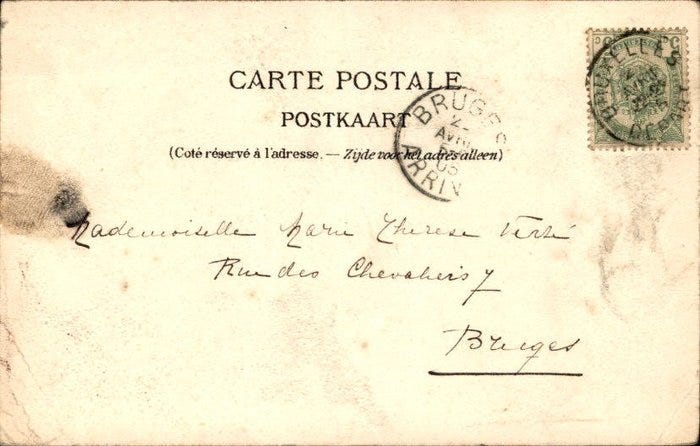 CARTE POSTALE
POSTKAART
(Coté réservé à l'adresse. — Zijde voor het adres alleen)
BRUGES
AVRIL
05
ARRIV
BRUXELLES
DEPART
Mademoiselle Marie Therese
Rue des Chevaliers 7
Bruges